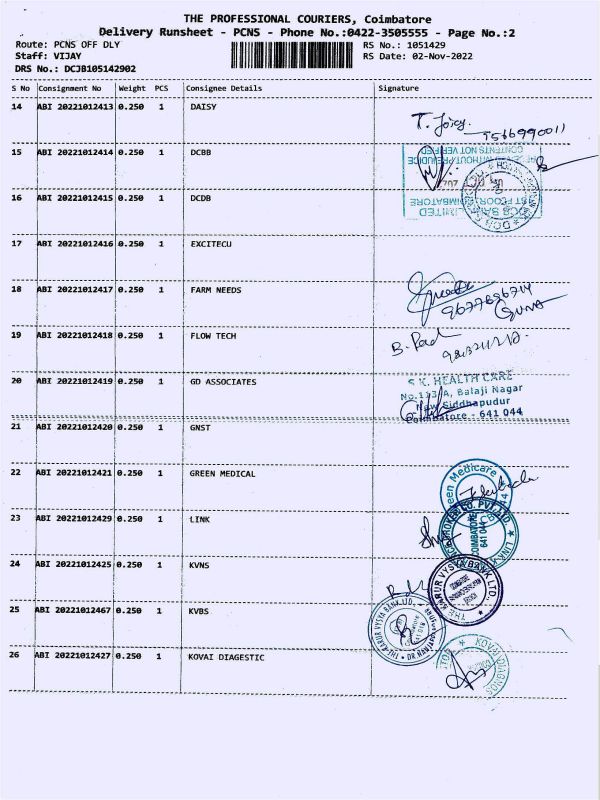 THE PROFESSIONAL COURIERS, Coimbatore
Delivery Runsheet - PCNS - Phone No.:0422-3505555 - Page No.:2
Route: PCNS OFF DLY
RS No.: 1051429
Staff: VIJAY
RS Date: 02-Nov-2022
DRS No.: DCJB105142902
S No Consignment No Weight PCS Consignee Details Signature
14 ABI 20221012413 0.250 1 DAISY
15 ABI 20221012414 0.250 1 DCBB
CONTENTS NOT VERIFIED
WITHOUT PREJUDICE
16 ABI 20221012415 0.250 1 DCDB
COIMBATORE
DCB BANK LIMITED
17 ABI 20221012416 0.250 1 EXCITECU
18 ABI 20221012417 0.250 1 FARM NEEDS
9677696714
GUNA
19 ABI 20221012418 0.250 1 FLOW TECH
20 ABI 20221012419 0.250 1 GD ASSOCIATES
S.K. HEALTH CARE
No.113/A, Balaji Nagar
New Siddhapudur
Coimbatore - 641 044
21 ABI 20221012420 0.250 1 GNST
22 ABI 20221012421 0.250 1 GREEN MEDICAL
Green Medicare
23 ABI 20221012429 0.250 1 LINK
COIMBATORE
641 044
24 ABI 20221012425 0.250 1 KVNS
THE KARUR VYSYA BANK LTD.
25 ABI 20221012467 0.250 1 KVBS
THE KARUR VYSYA BANK LTD.
26 ABI 20221012427 0.250 1 KOVAI DIAGESTIC